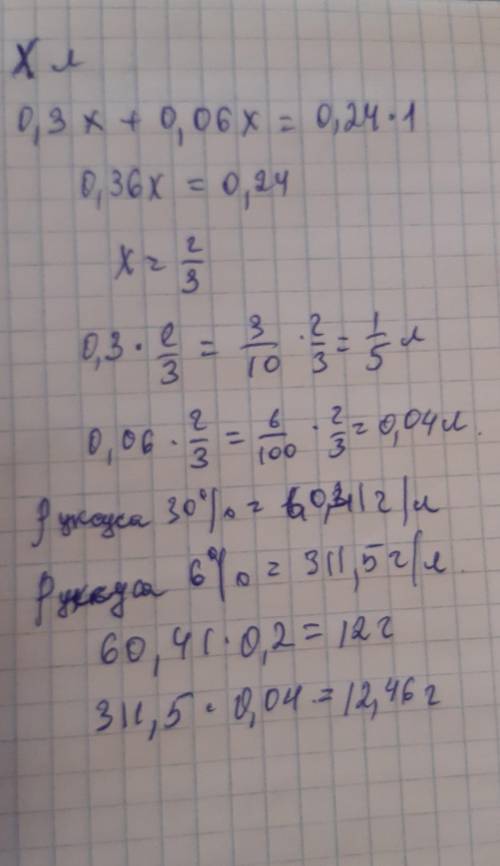 X л
0,3 x + 0,06x = 0,24·1
0,36x = 0,24
x = 2/3
0,3 · 2/3 = 3/10 · 2/3 = 1/5 л
0,06 · 2/3 = 6/100 · 2/3 = 0,04 л.
ρ уксуса 30% = г/л
ρ уксуса 6% = 311,5 г/л.
60,41 · 0,2 = 12 г
311,5 · 0,04 = 12,46 г